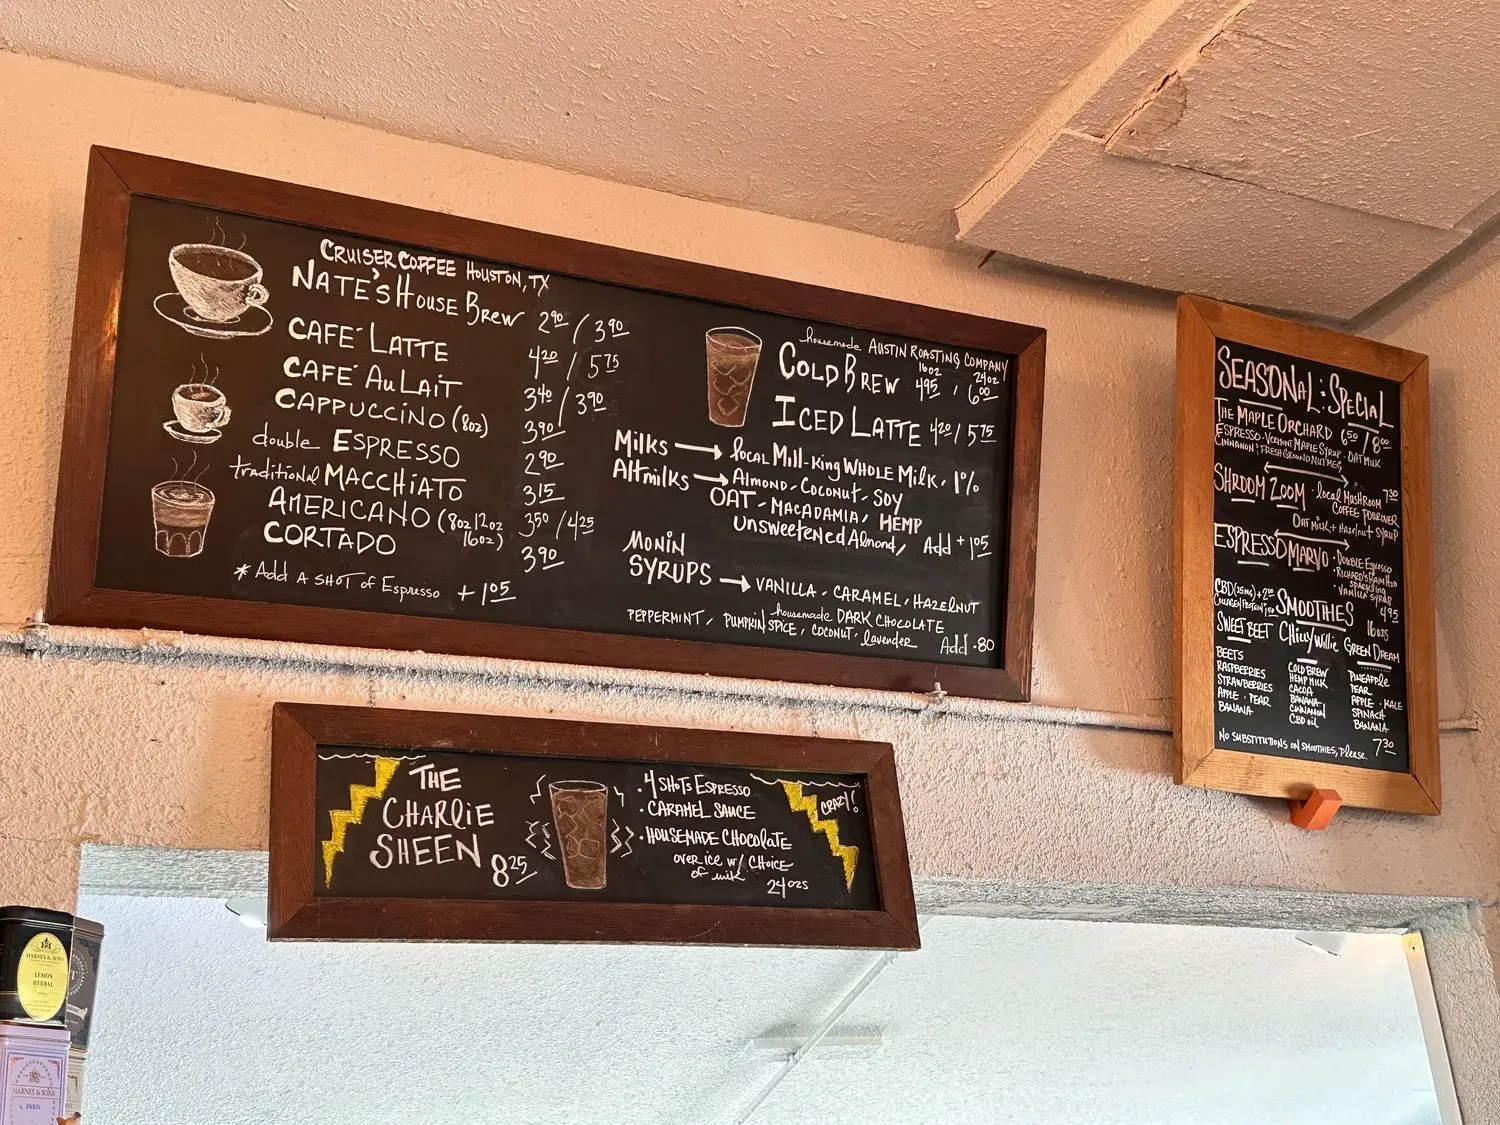 CRUISER COFFEE HOUSTON, TX
NATE'S HOUSE BREW 2.90 / 3.90
CAFÉ LATTE 4.20 / 5.75
CAFÉ AU LAIT 3.40 / 3.90
CAPPUCCINO (8oz) 3.90
double ESPRESSO 2.90
traditional MACCHIATO 3.15
AMERICANO (8oz 12oz 16oz) 3.50 / 4.25
CORTADO 3.90
* Add A SHOT of Espresso + 1.05
housemade AUSTIN ROASTING COMPANY
16oz 24oz
COLD BREW 4.95 , 6.00
ICED LATTE 4.20 / 5.75
Milks → local Mill-King WHOLE Milk, 1%
Altmilks → Almond, Coconut, Soy
OAT - MACADAMIA, HEMP
Unsweetened Almond, Add + 1.05
MONIN
SYRUPS → VANILLA - CARAMEL, HAZELNUT
housemade DARK CHOCOLATE
PEPPERMINT, PUMPKIN SPICE, COCONUT, lavender Add .80
THE
CHARLIE
SHEEN 8.25
• 4 SHOTS ESPRESSO
• CARAMEL SAUCE
• HOUSEMADE CHOCOLATE
OVER ICE W/ CHOICE
of milk
24ozs
CRAZY!
SEASONAL: SPECIAL
THE MAPLE ORCHARD 6.50 / 8.00
ESPRESSO - VERMONT MAPLE SYRUP - OAT MILK
CINNAMON, FRESH GROUND NUTMEG
SHROOM ZOOM - local MUSHROOM 7.30
COFFEE POUROVER
OAT MILK + HAZELNUT SYRUP
ESPRESSO MARVO - DOUBLE ESPRESSO
• RICHARD'S RAIN H2O
SPARKLING
VANILLA SYRUP
4.95
CBD (25MG) + 2.00
COLLAGEN PROTEIN
SMOOTHIES 16ozs
SWEET BEET
BEETS
RASPBERRIES
STRAWBERRIES
APPLE - PEAR
BANANA
CHILLY WILLIE
COLD BREW
HEMP MILK
CACOA
BANANA
CINNAMON
CBD oil
GREEN DREAM
PINEAPPLE
PEAR
APPLE - KALE
SPINACH
BANANA
NO SUBSTITUTIONS ON SMOOTHIES, Please. 7.30
HARNEY & SONS
LEMON
HERBAL
HARNEY & SONS
PARIS